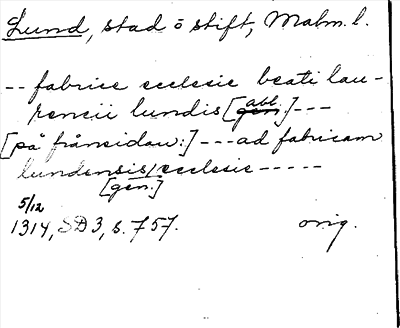 Lund, stad o stift, Malm. l.
-- fabrice ecclesie beati lau-
rencii lundis [gen abl.] ---
[på frånsidan:] --- ad fabricam
lundensis/ecclesie -----
[gen.]
5/12
1314, SD 3, s. 757. orig.